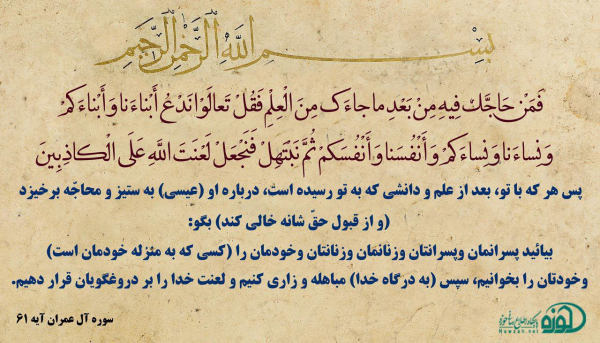 بِسْمِ اللَّهِ الرَّحْمَنِ الرَّحِيمِ
فَمَنْ حَاجَّكَ فِيهِ مِنْ بَعْدِ ما جاءَكَ مِنَ الْعِلْمِ فَقُلْ تَعالَوْا نَدْعُ أَبْناءَنا وَ أَبْناءَكُمْ
وَ نِساءَنا وَ نِساءَكُمْ وَ أَنْفُسَنا وَ أَنْفُسَكُمْ ثُمَّ نَبْتَهِلْ فَنَجْعَلْ لَعْنَتَ اللَّهِ عَلَى الْكاذِبِينَ
پس هر که با تو، بعد از علم و دانشی که به تو رسیده است، درباره او (عیسی) به ستیز و محاجّه برخیزد
(و از قبول حقّ شانه خالی کند) بگو:
بیائید پسرانمان وپسرانتان وزنانمان وزنانتان وخودمان را (کسی که به منزله خودمان است)
وخودتان را بخوانیم، سپس (به درگاه خدا) مباهله و زاری کنیم و لعنت خدا را بر دروغگویان قرار دهیم.
سوره آل عمران آیه ۶۱
پایگاه اطلاع رسانی حوزه
Hawzah.net